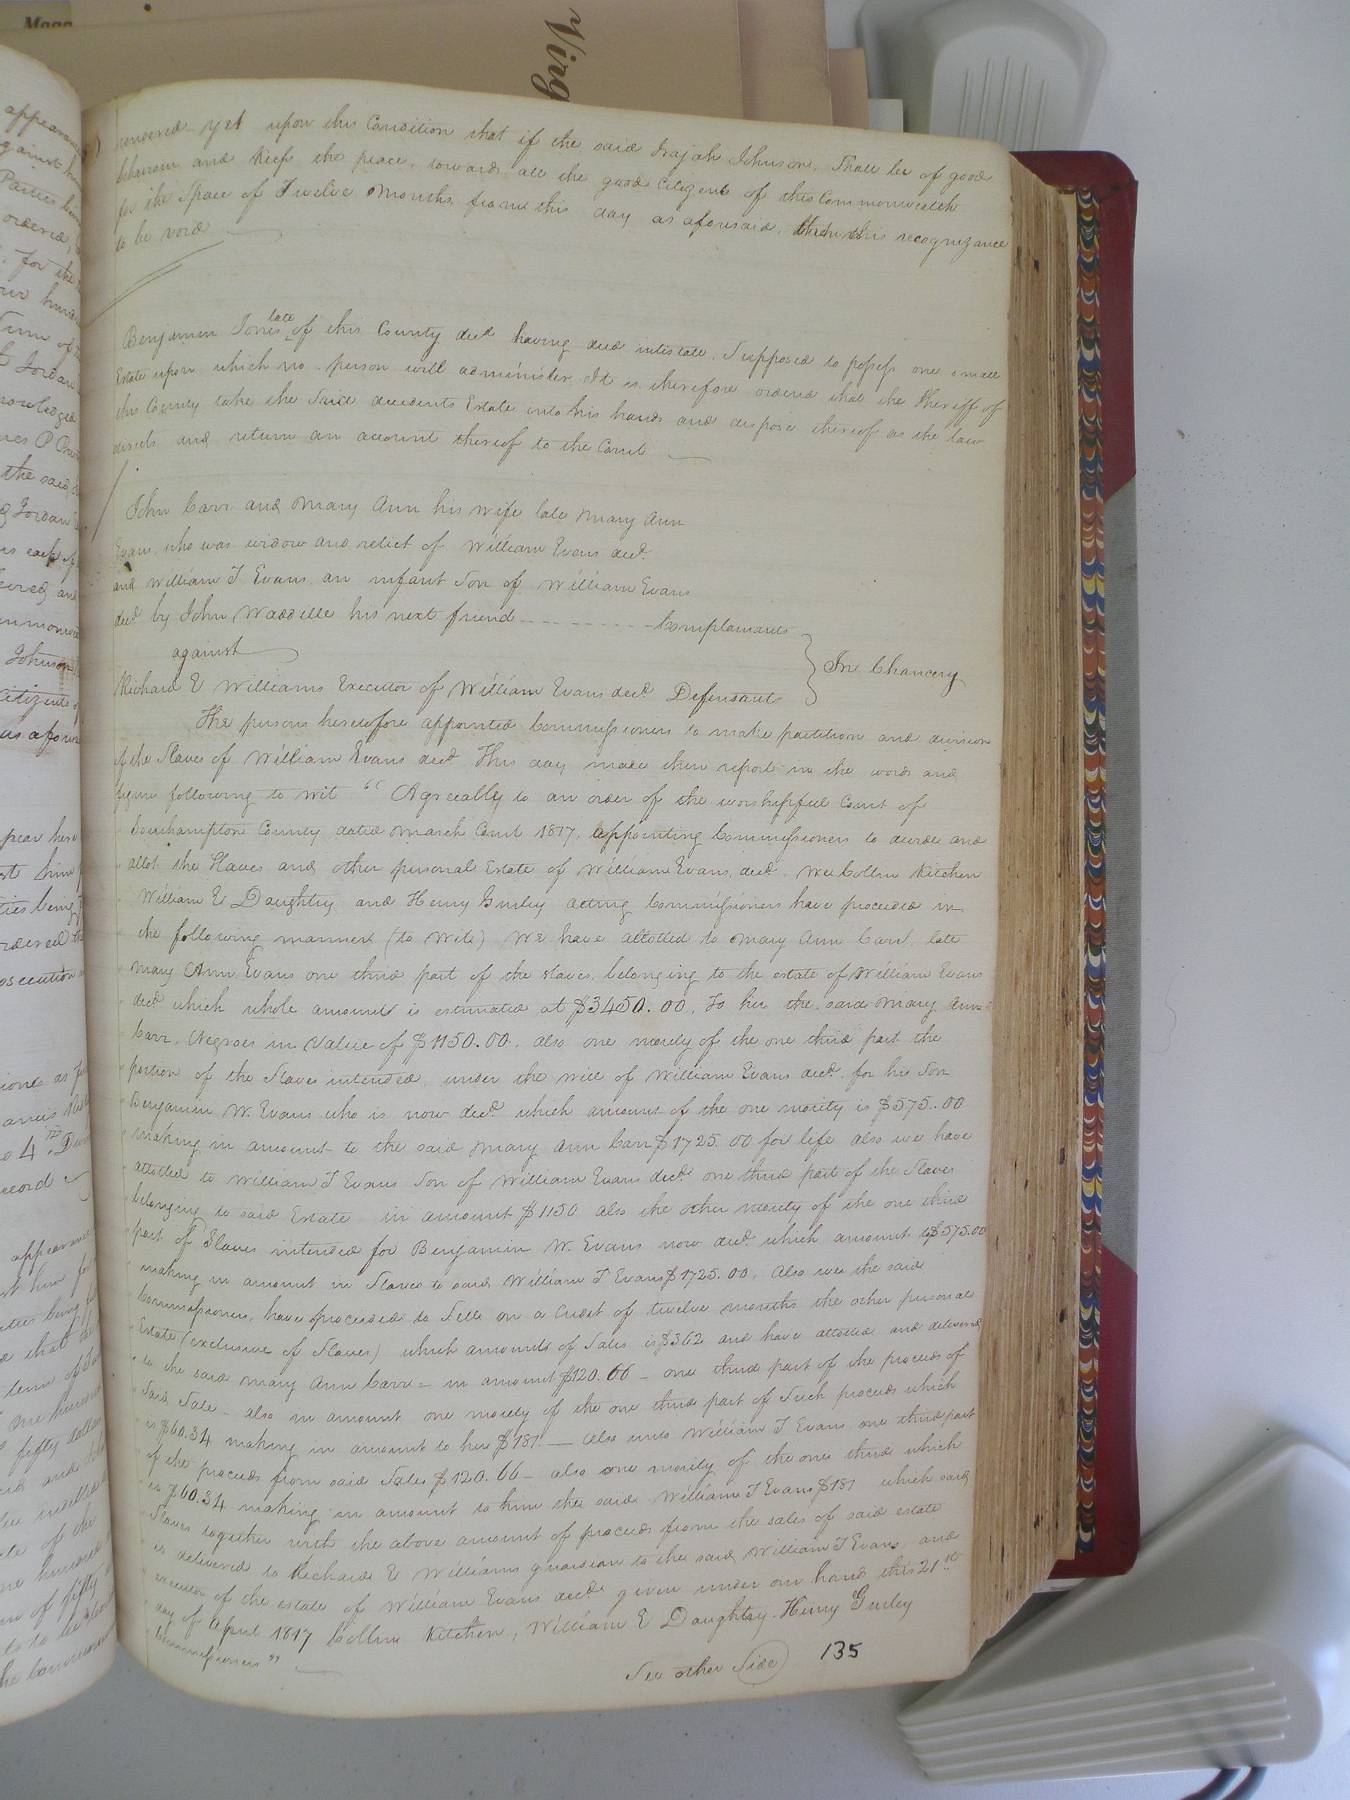 Virg
rendered - yet upon this Condition that if the said Isajah Johnson, Shall be of good
behaviour and Keep the peace, towards all the good Citizens of this Commonwealth
for the Space of Twelve Months from this day as aforesaid, then this recognizance
to be void
Benjamin Jones late of this County decd having died intestate, Supposed to possess one small
Estate upon which no person will administer, It is therefore ordered that the Sheriff of
this County take the Said decedents Estate into his hands and dispose thereof as the law
directs and return an account thereof to the Court
John Carr and Mary Ann his wife late Mary Ann
Evans, who was widow and relict of William Evans decd
and William T Evans an infant Son of William Evans
decd by John Waddille his next friend Complainants
against
Richard E Williams Executor of William Evans decd Defendant
In Chancery
The persons heretofore appointed Commissioners to make partition and division
of the Slaves of William Evans decd This day made their report in the words and
figure following to wit " Agreeably to an order of the worshipful Court of
Southampton County dated March Court 1817, appointing Commissioners to divide and
allot the Slaves and other personal Estate of William Evans, decd, We Collin Kitchen
William E Daughtry and Henry Gurley acting Commissioners have proceeded in
the following manner (to Wit) We have allotted to Mary Ann Carr, late
Mary Ann Evans one third part of the slaves, belonging to the estate of William Evans
decd which whole amounts is estimated at $3450.00, To her the said Mary Ann
Carr, Negroes in Value of $1150.00, also one moiety of the one third part the
portion of the Slaves intended, under the will of William Evans decd for his Son
Benjamin W. Evans who is now decd which amount of the one moiety is $575..00
making in amount to the said Mary Ann Carr $1725.00 for life also we have
allotted to William T Evans Son of William Evans decd one third part of the Slaves
belonging to said Estate in amount $1150 also the other moiety of the one third
part of Slaves intended for Benjamin W. Evans now decd which amount to $575.00
making in amount in Slaves to said William T Evans $1725.00, Also we the said
Commissioners, have proceeded to Sell on a Credit of twelve months the other personal
Estate (exclusive of Slaves) which amounts of Sales is $362 and have allotted and delivered
to the said Mary Ann Carr - in amount $120.66 - one third part of the proceeds of
Said Sale - also in amount one moiety of the one third part of Such proceeds which
is $60.34 making in amount to her $181. - Also unto William T Evans one third part
of the proceeds from said Sales $120.66 - also one moiety of the one third which
is $60.34 making in amount to him the said William T Evans $181 which said
Slaves together with the above amount of proceeds from the sales of said estate
is delivered to Richard E Williams guardian to the said William T Evans and
executor of the estate of William Evans decd given under our hand this 21st
day of April 1817 Collin Kitchen, William E Daughtry. Henry Gurley
Commissioners"
See other Side
135